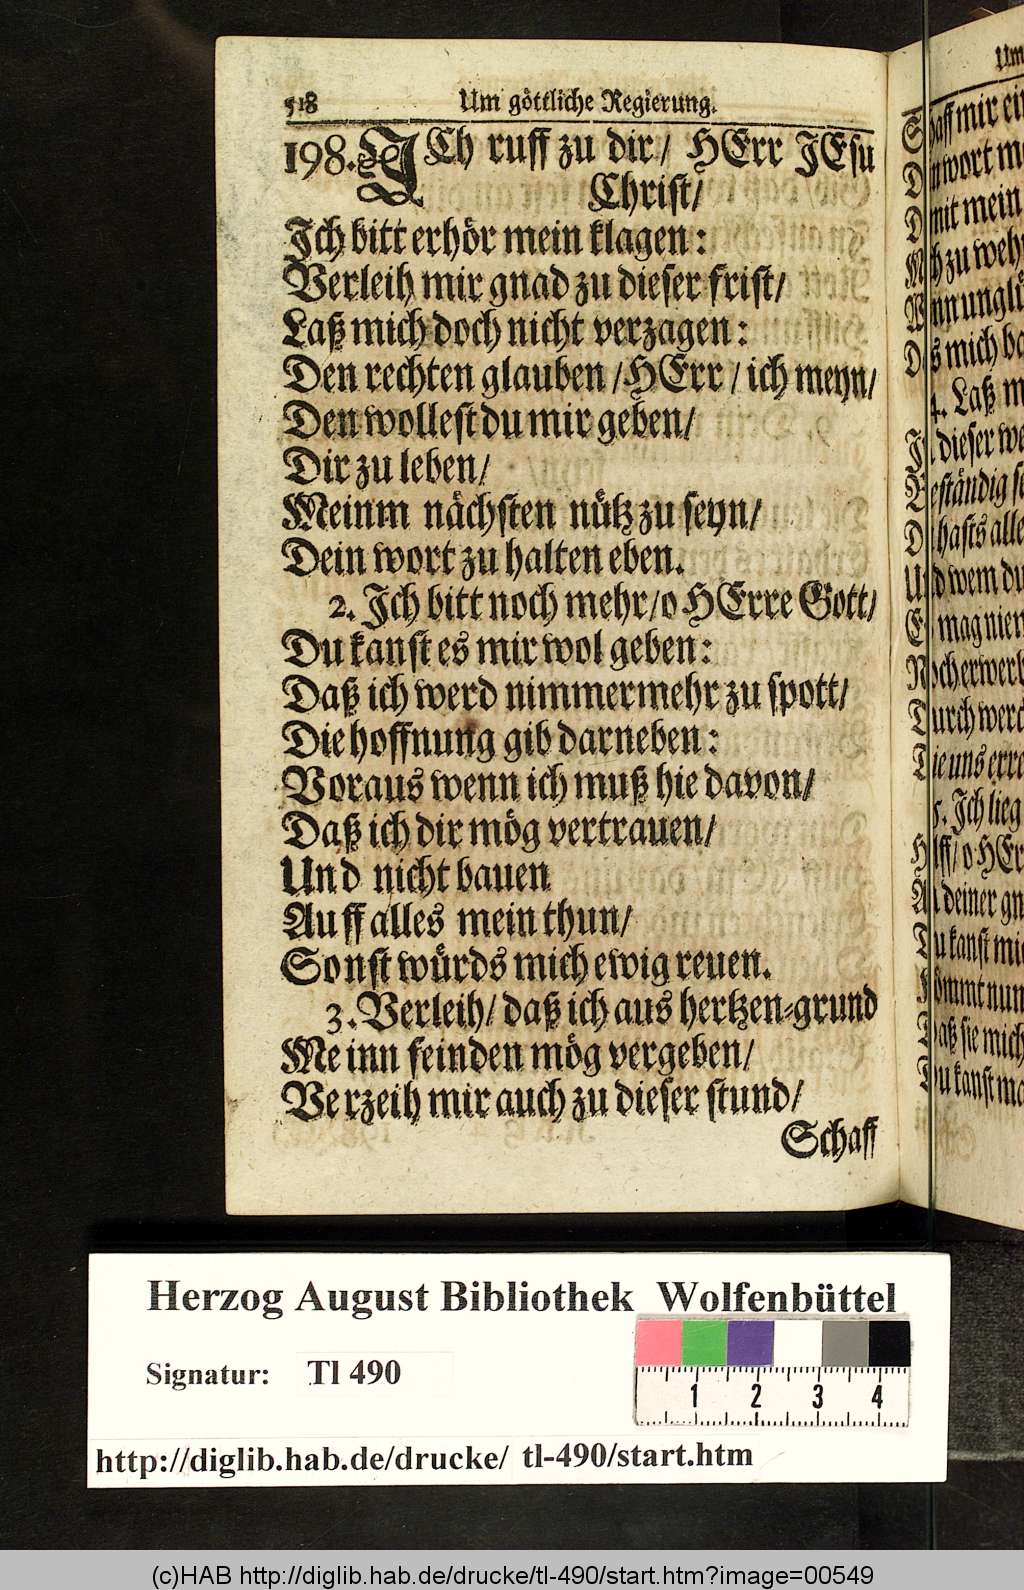 518 Um göttliche Regierung.
198. ICh ruff zu dir/ HErr JEsu
Christ/
Ich bitt erhör mein klagen:
Verleih mir gnad zu dieser frist/
Laß mich doch nicht verzagen:
Den rechten glauben/HErr/ich meyn/
Den wollest du mir geben/
Dir zu leben/
Meinm nächsten nütz zu seyn/
Dein wort zu halten eben.
2. Ich bitt noch mehr/o HErre Gott/
Du kanst es mir wol geben:
Daß ich werd nimmermehr zu spott/
Die hoffnung gib darneben:
Voraus wenn ich muß hie davon/
Daß ich dir mög vertrauen/
Und nicht bauen
Auff alles mein thun/
Sonst würds mich ewig reuen.
3. Verleih/ daß ich aus hertzen-grund
Meinn feinden mög vergeben/
Verzeih mir auch zu dieser stund/
Schaff
Um
mir
wort
mit mein
zu
mich
4. Laß
dieser
Beständig
wem du
mag
Noch
Durch
uns
5. Ich lieg
o
deiner
Du kanst
sie mich
Du kanst
Herzog August Bibliothek Wolfenbüttel
Signatur: Tl 490
1 2 3 4
http://diglib.hab.de/drucke/ tl-490/start.htm
(c)HAB http://diglib.hab.de/drucke/tl-490/start.htm?image=00549